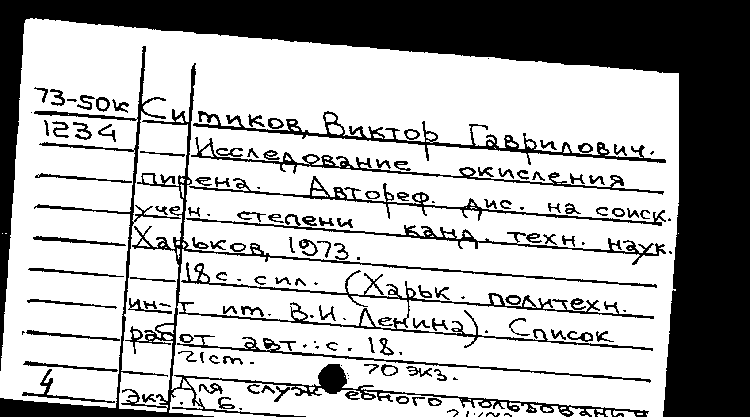 73-50к Ситиков, Виктор Гаврилович.
1234 Исследование окисления
пирена. Автореф. дис. на соиск.
учен. степени канд. техн. наук.
Харьков, 1973.
18 с. с ил. (Харьк. политехн.
ин-т им. В.И. Ленина). Список
работ авт.: с. 18.
21 ст. 70 экз.
4 Для служебного пользования
Экз. № 6.